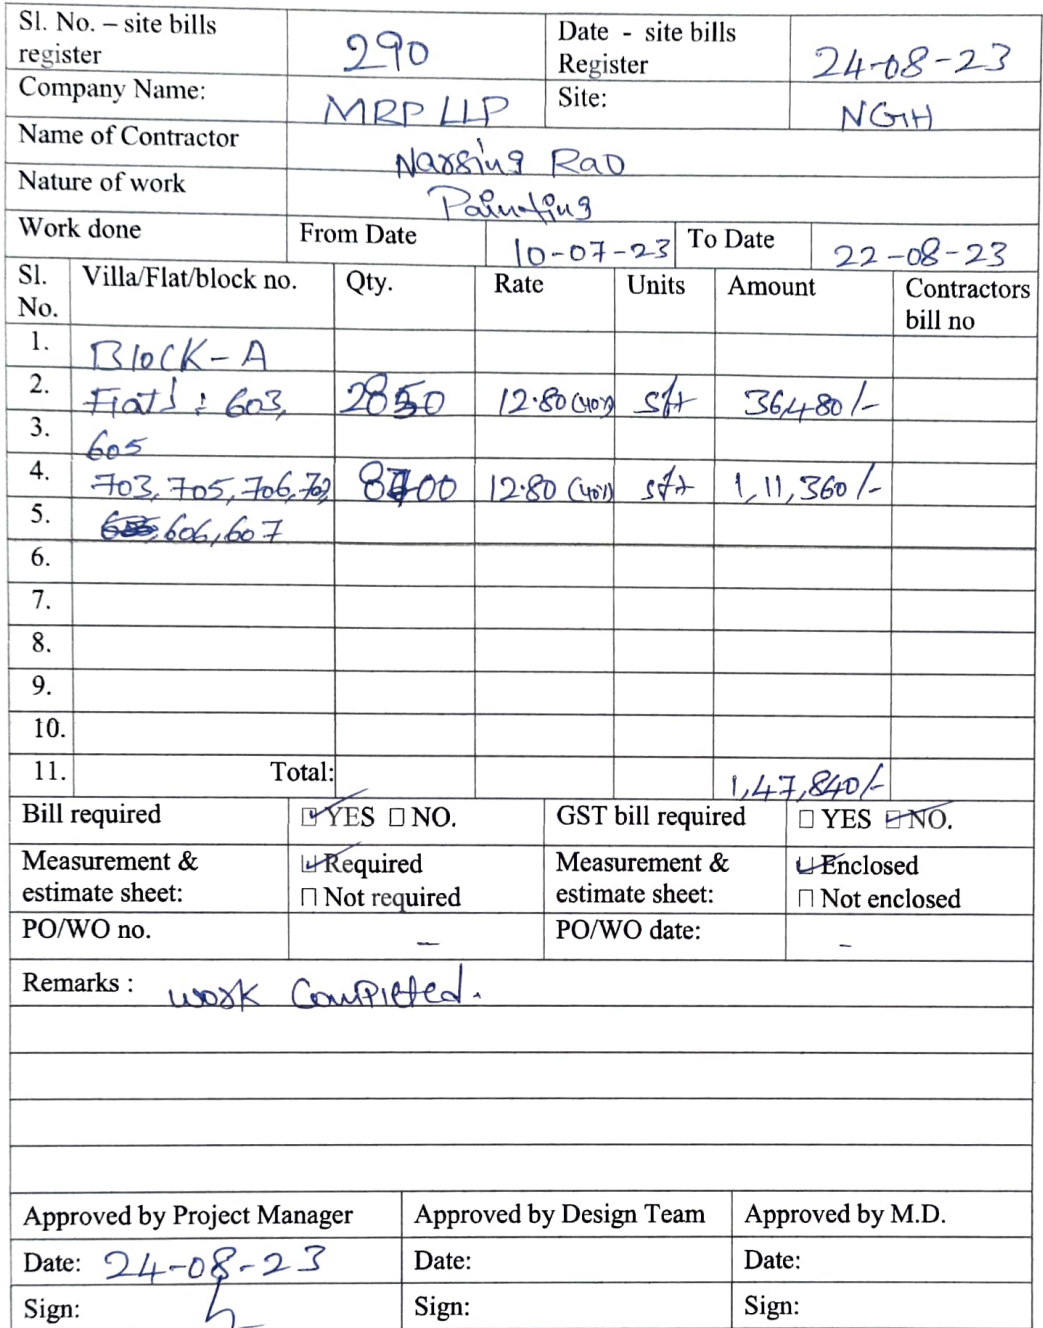 Sl. No. – site bills register 290 Date - site bills Register 24-08-23
Company Name: MRP LLP Site: NGH
Name of Contractor Narsing Rao
Nature of work Painting
Work done From Date 10-07-23 To Date 22-08-23
Sl. No. Villa/Flat/block no. Qty. Rate Units Amount Contractors bill no
1. Block-A
2. Flats : 603, 2850 12.80 (40%) sft 36,480/-
3. 605
4. 703, 705, 706, 8700 12.80 (40%) sft 1,11,360/-
5. 606, 607
6.
7.
8.
9.
10.
11. Total: 1,47,840/-
Bill required ☑ YES ☐ NO. GST bill required ☐ YES ☑ NO.
Measurement & estimate sheet: ☑ Required ☐ Not required Measurement & estimate sheet: ☑ Enclosed ☐ Not enclosed
PO/WO no. – PO/WO date: –
Remarks : work Completed.
Approved by Project Manager Approved by Design Team Approved by M.D.
Date: 24-08-23 Date: Date:
Sign: Sign: Sign: